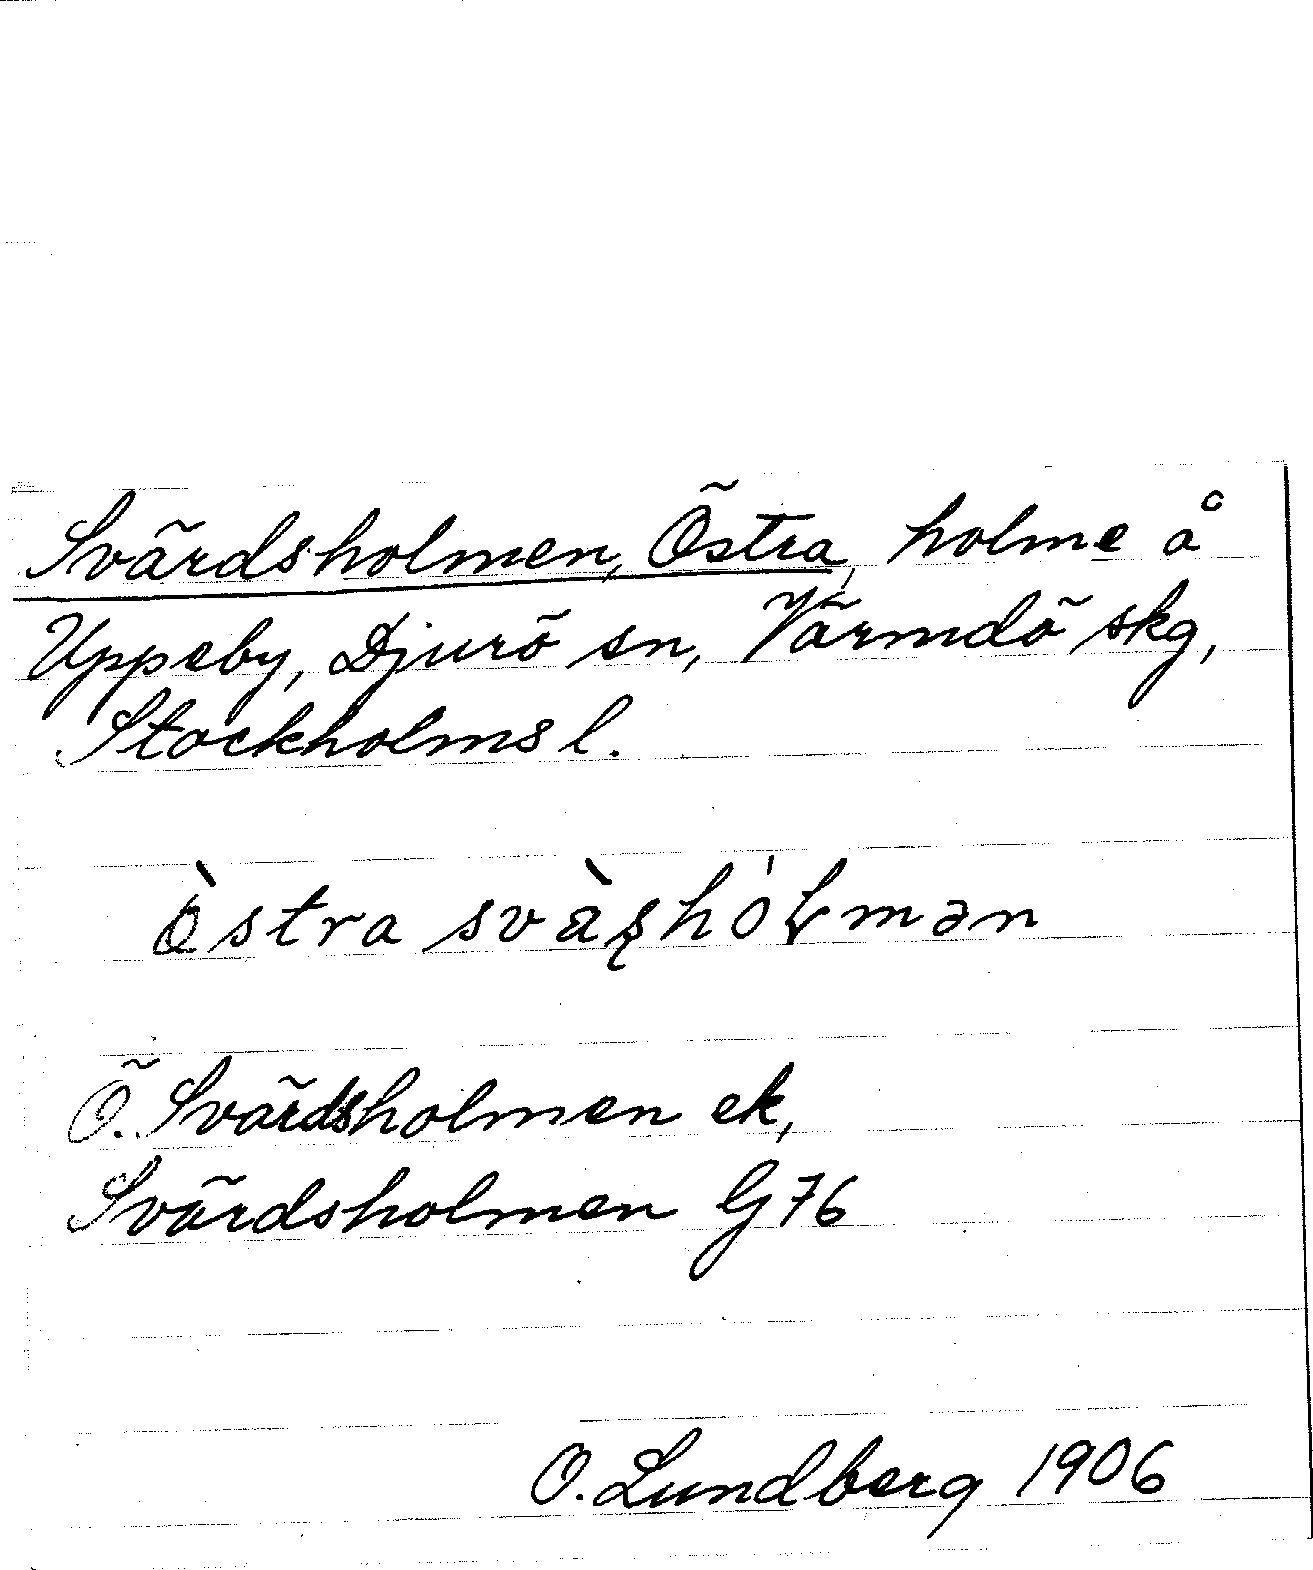 Svärdsholmen, Östra, holme å
Uppeby, Djurö sn, Värmdö skg,
Stockholms l.
Östra svàʂhólmən
Ö. Svärdsholmen ek,
Svärdsholmen G 76
O. Lundberg 1906